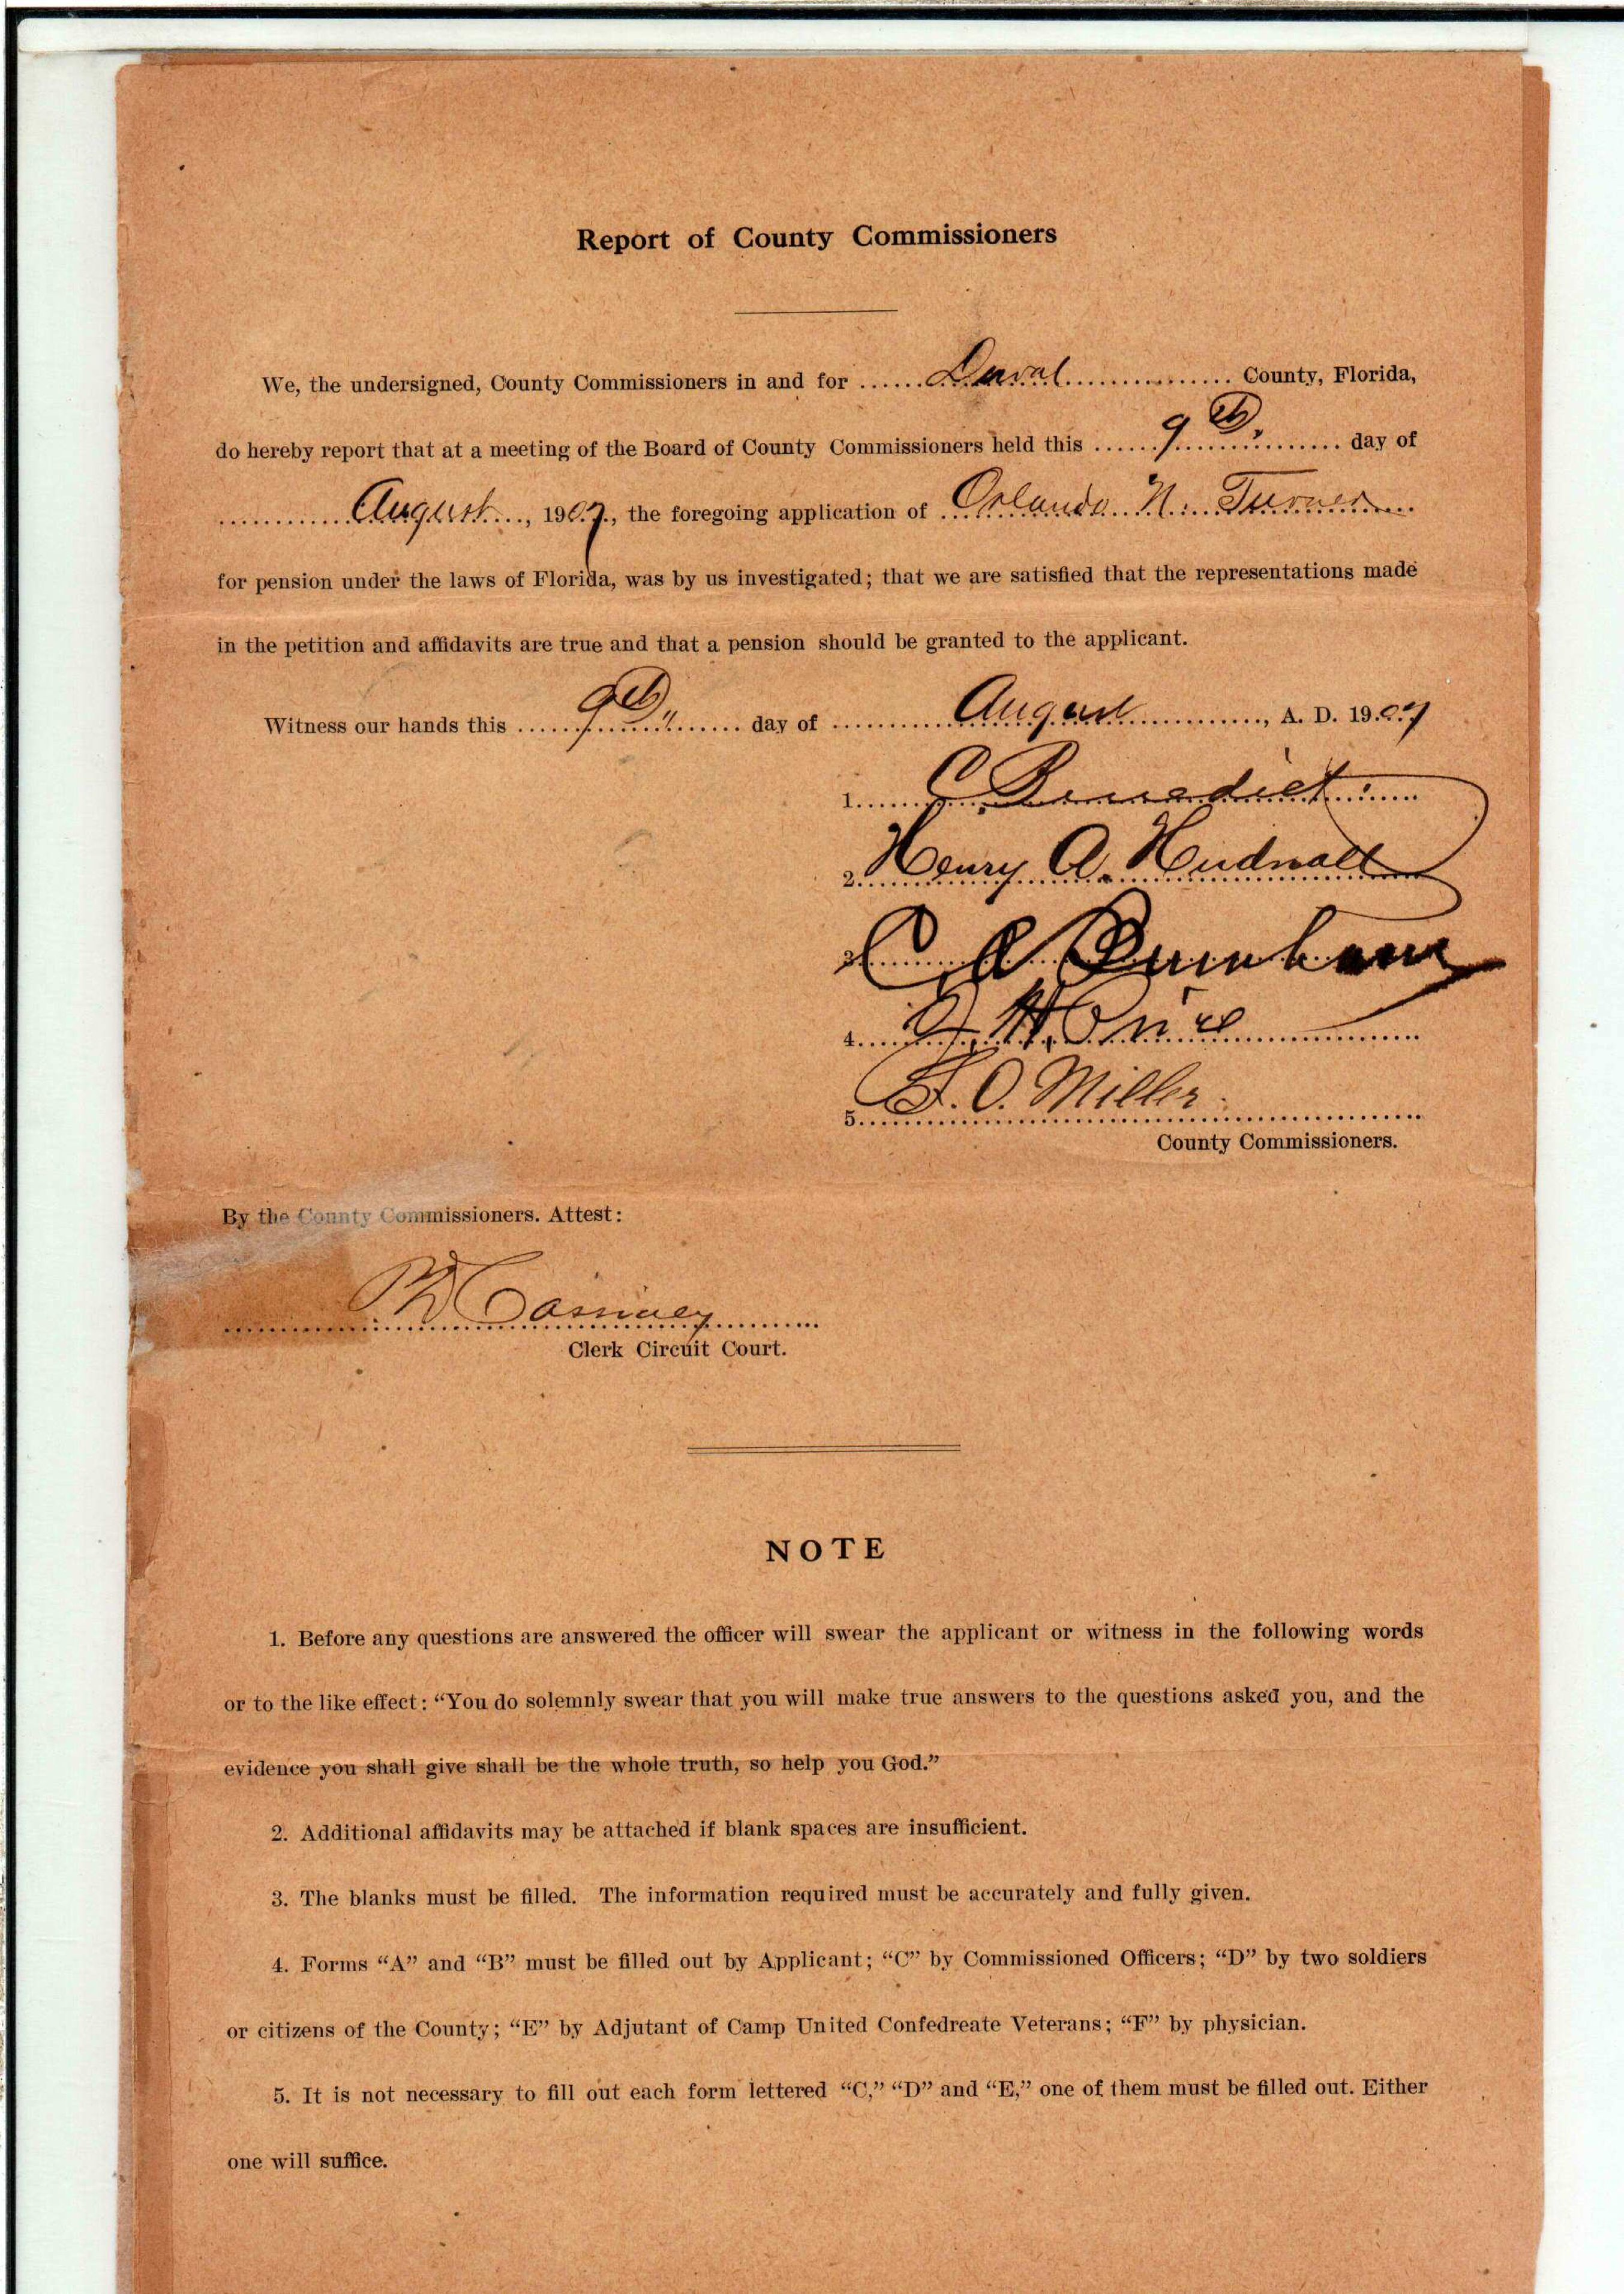 Report of County Commissioners
We, the undersigned, County Commissioners in and for ...... Duval ................ County, Florida,
do hereby report that at a meeting of the Board of County Commissioners held this ...... 9th ............ day of
............ August ...., 1907., the foregoing application of .. Orlando N. Turner ..
for pension under the laws of Florida, was by us investigated; that we are satisfied that the representations made
in the petition and affidavits are true and that a pension should be granted to the applicant.
Witness our hands this ...... 9th ........ day of ............ August ............, A. D. 1907
1. C Benedict
2. Henry A. Hudnall
3. C
4. H.
5. F. O. Miller
County Commissioners.
By the County Commissioners. Attest:
P D Cassidey
Clerk Circuit Court.
NOTE
1. Before any questions are answered the officer will swear the applicant or witness in the following words
or to the like effect: “You do solemnly swear that you will make true answers to the questions asked you, and the
evidence you shall give shall be the whole truth, so help you God.”
2. Additional affidavits may be attached if blank spaces are insufficient.
3. The blanks must be filled. The information required must be accurately and fully given.
4. Forms “A” and “B” must be filled out by Applicant; “C” by Commissioned Officers; “D” by two soldiers
or citizens of the County; “E” by Adjutant of Camp United Confedreate Veterans; “F” by physician.
5. It is not necessary to fill out each form lettered “C,” “D” and “E,” one of them must be filled out. Either
one will suffice.